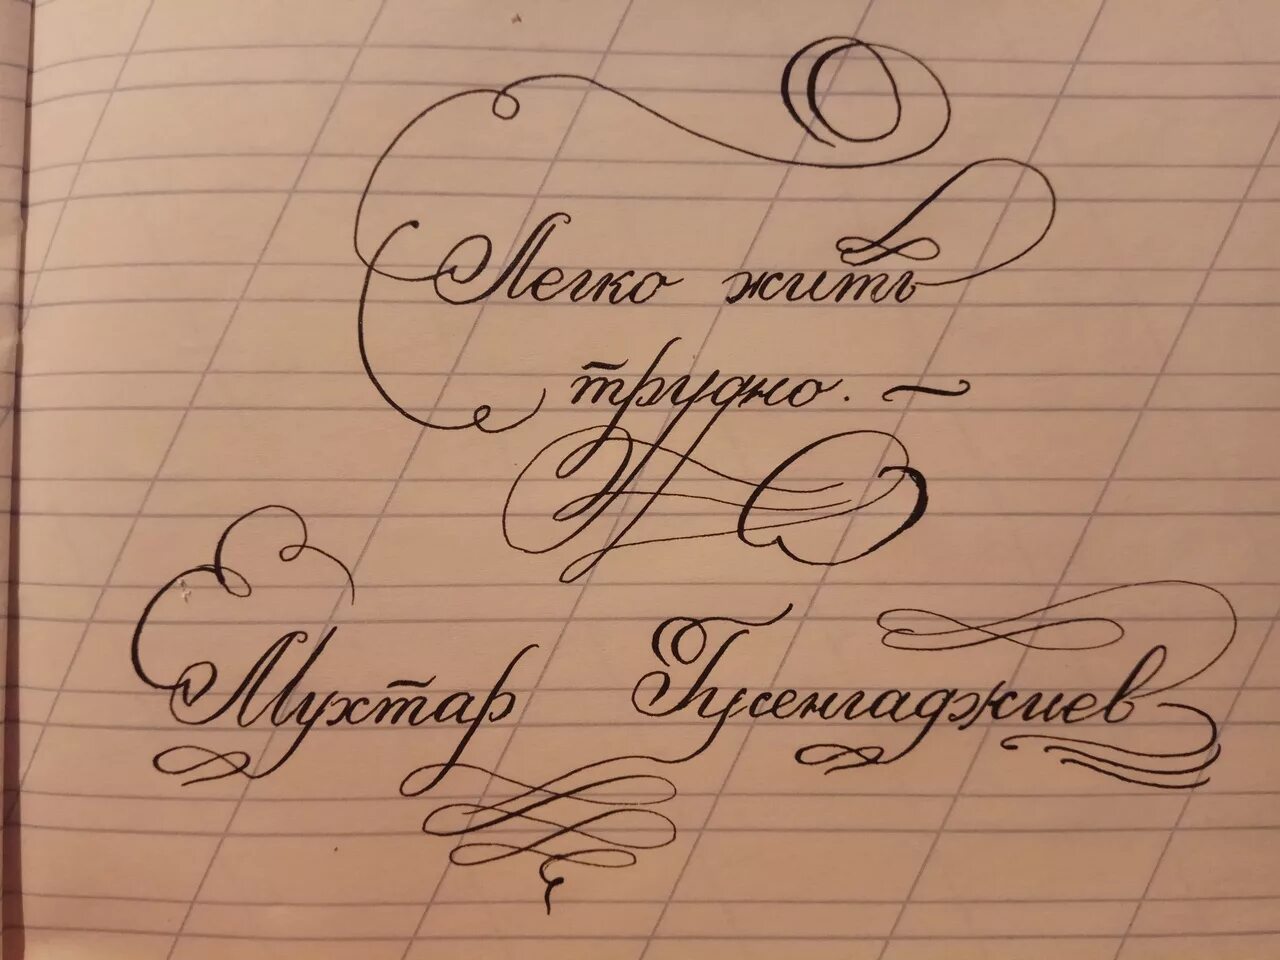 Легко жить
трудно. ~
Мухтар Гусенгаджиев